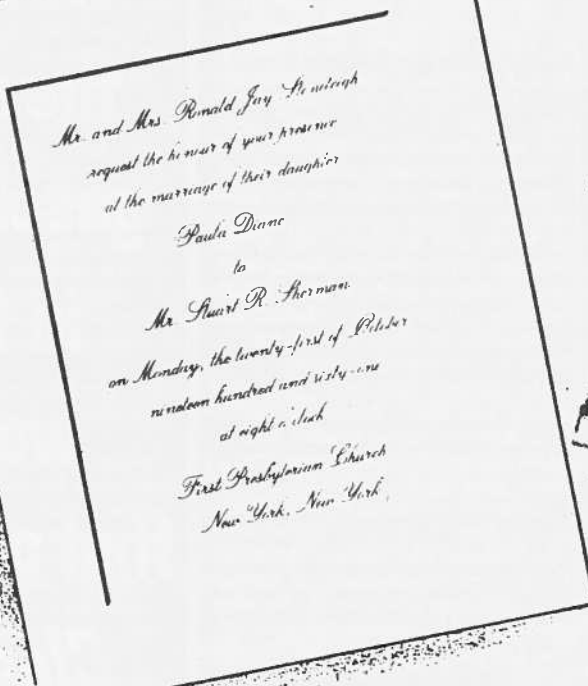 Mr. and Mrs. Ronald Jay
request the honour of your presence
at the marriage of their daughter
Paula Diane
to
Mr. Stuart R. Sherman
on Monday, the twenty-first of October
nineteen hundred and sixty-one
at eight o'clock
First Presbyterian Church
New York, New York